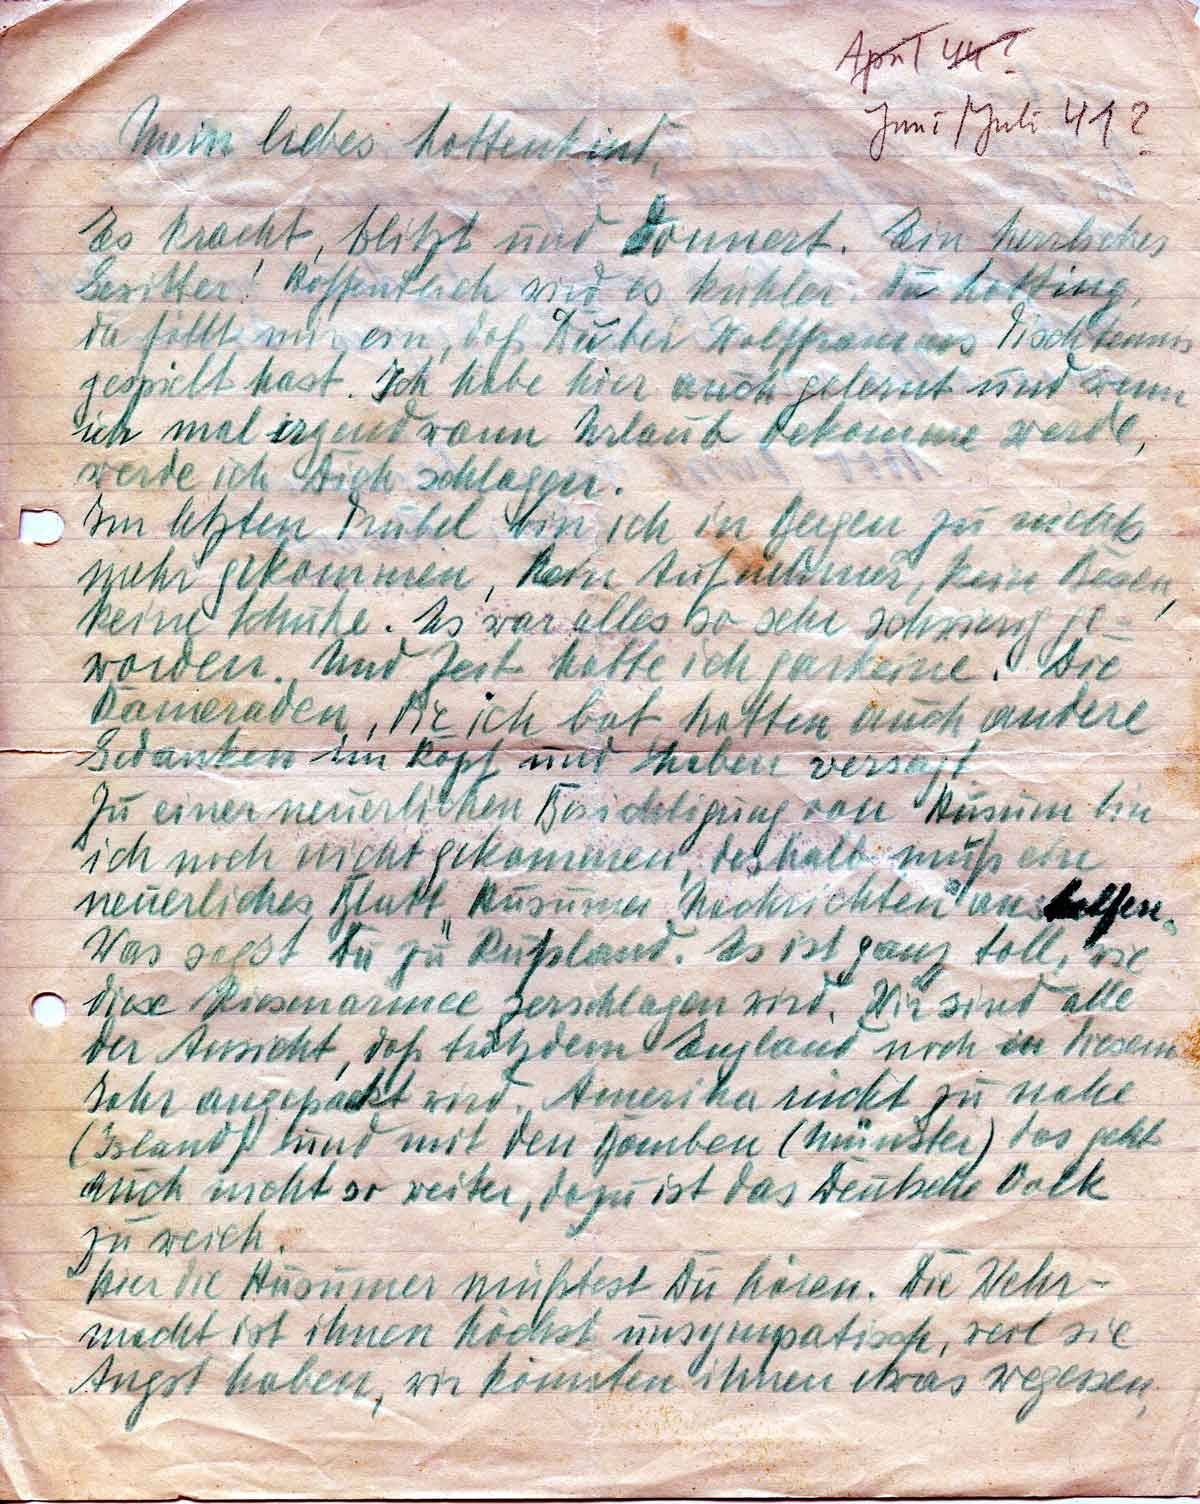 April 44?
Juni/Juli 41?
Mein liebes Lottenkind,
Es kracht, blitzt und Donnert. Ein herrliches
Gewitter! Hoffentlich wird es kühler. Du Lotting,
da fällt mir ein, daß Du bei Wolfframms Tischtennis
gespielt hast. Ich habe hier auch gelernt und wenn
ich mal irgendwann Urlaub bekomme werde,
werde ich Dich schlagen.
Im letzten Trubel bin ich in Bergen zu nichts
mehr gekommen, kein Aufnehmer, kein Besen,
keine Schuhe. Es war alles so sehr schwierig ge-
worden. Und Zeit hatte ich garkeine. Die
Kameraden, die ich bat hatten auch andere
Gedanken im Kopf und haben versagt.
Zu einer neuerlichen Besichtigung von Husum bin
ich noch nicht gekommen, deshalb muß ein
neuerliches Blatt "Husumer Nachrichten" aushelfen.
Was sagst Du zu Rußland. Es ist ganz toll, wie
diese Riesenarmee zerschlagen wird. Wir sind alle
der Ansicht, daß trotzdem England noch in diesem
Jahr angepackt wird. Amerika rückt zu nahe
(Island) und mit den Bomben (Münster) das geht
auch nicht so weiter, dazu ist das Deutsche Volk
zu weich.
Hier die Husumer müßtest Du hören. Die Wehr-
macht ist ihnen höchst unsympatisch, weil sie
Angst haben, wir könnten ihnen etwas wegessen,